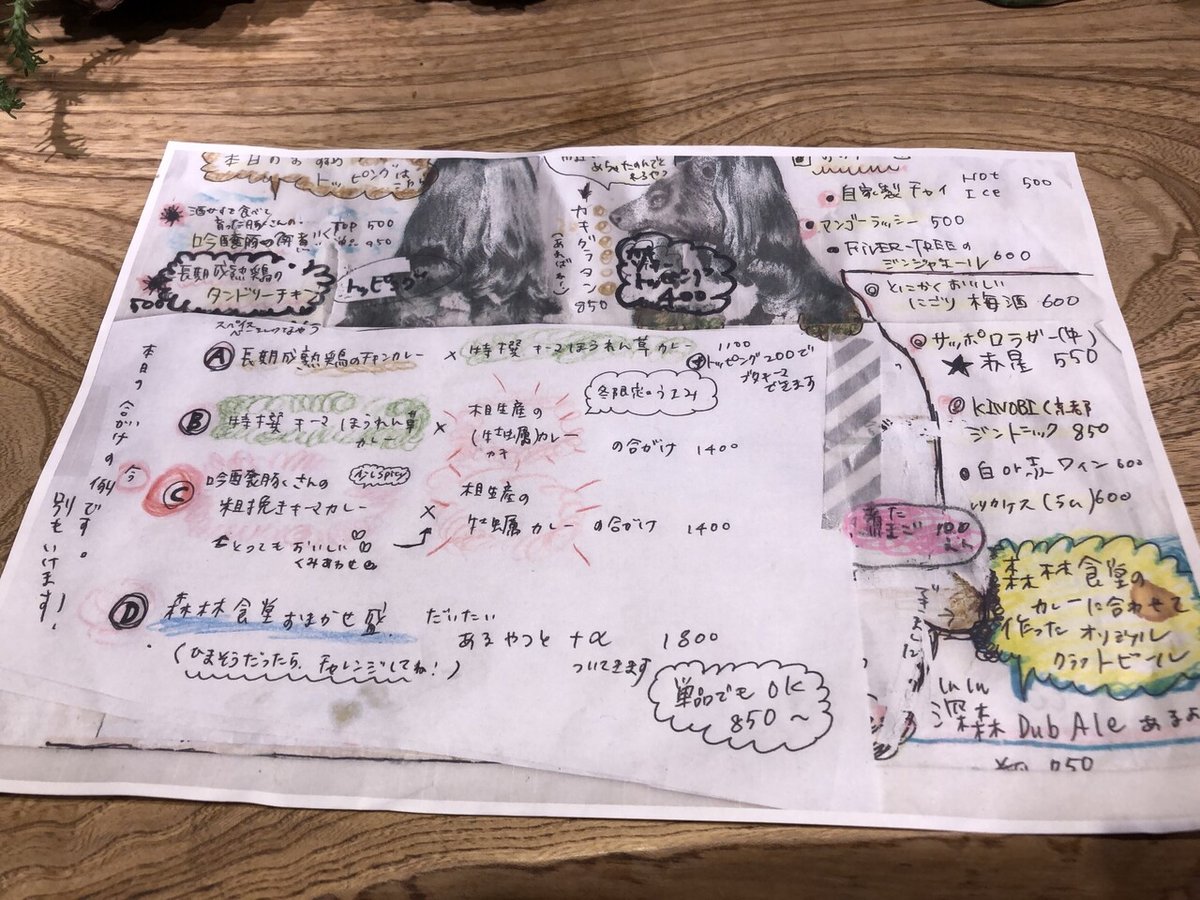 本日のおすすめ
トッピングは
酒かすで食べて
育った豚くさんの
吟醸豚の
500
長期熟成鶏の
タンドリーチキン
500
トッピング
カキグラタン
(あればね!)
850
トッピング
400
自家製チャイ Hot Ice 500
マンゴーラッシー 500
FEVER-TREEの
ジンジャエール 600
とにかくおいしい
にごり梅酒 600
サッポロラガー(中)
★赤星 550
KINOBI(京都
ジントニック 850
白 or 赤ワイン 600
600
100
えん
本日の合がけの例です。
別もいけます!
Ⓐ 長期熟成鶏のチキンカレー × 特撰キーマほうれん草カレー 1100
トッピング200で
できます
冬限定のうまみ
Ⓑ 特撰キーマほうれん草
カレー × 相生産の
(牡蠣)カレー
カキ
の合がけ 1400
今
Ⓒ 吟醸豚くさんの
少しSpicy
粗挽きキーマカレー × 相生産の
牡蠣カレー の合がけ 1400
とってもおいしい♡♡
くみあわせ
Ⓓ 森林食堂おまかせ盛 だいたい
あるやつと +α 1800
ついてきます
(ひまそうだったら、チャレンジしてね!)
単品でもOK
850〜
森林食堂の
カレーに合わせて
作ったオリジナル
クラフトビール
しんしん
深森 Dub Ale あるよ
850